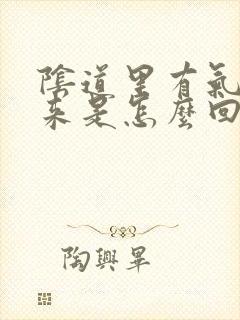 陰道里有氣
來是怎麼回
陶興畢